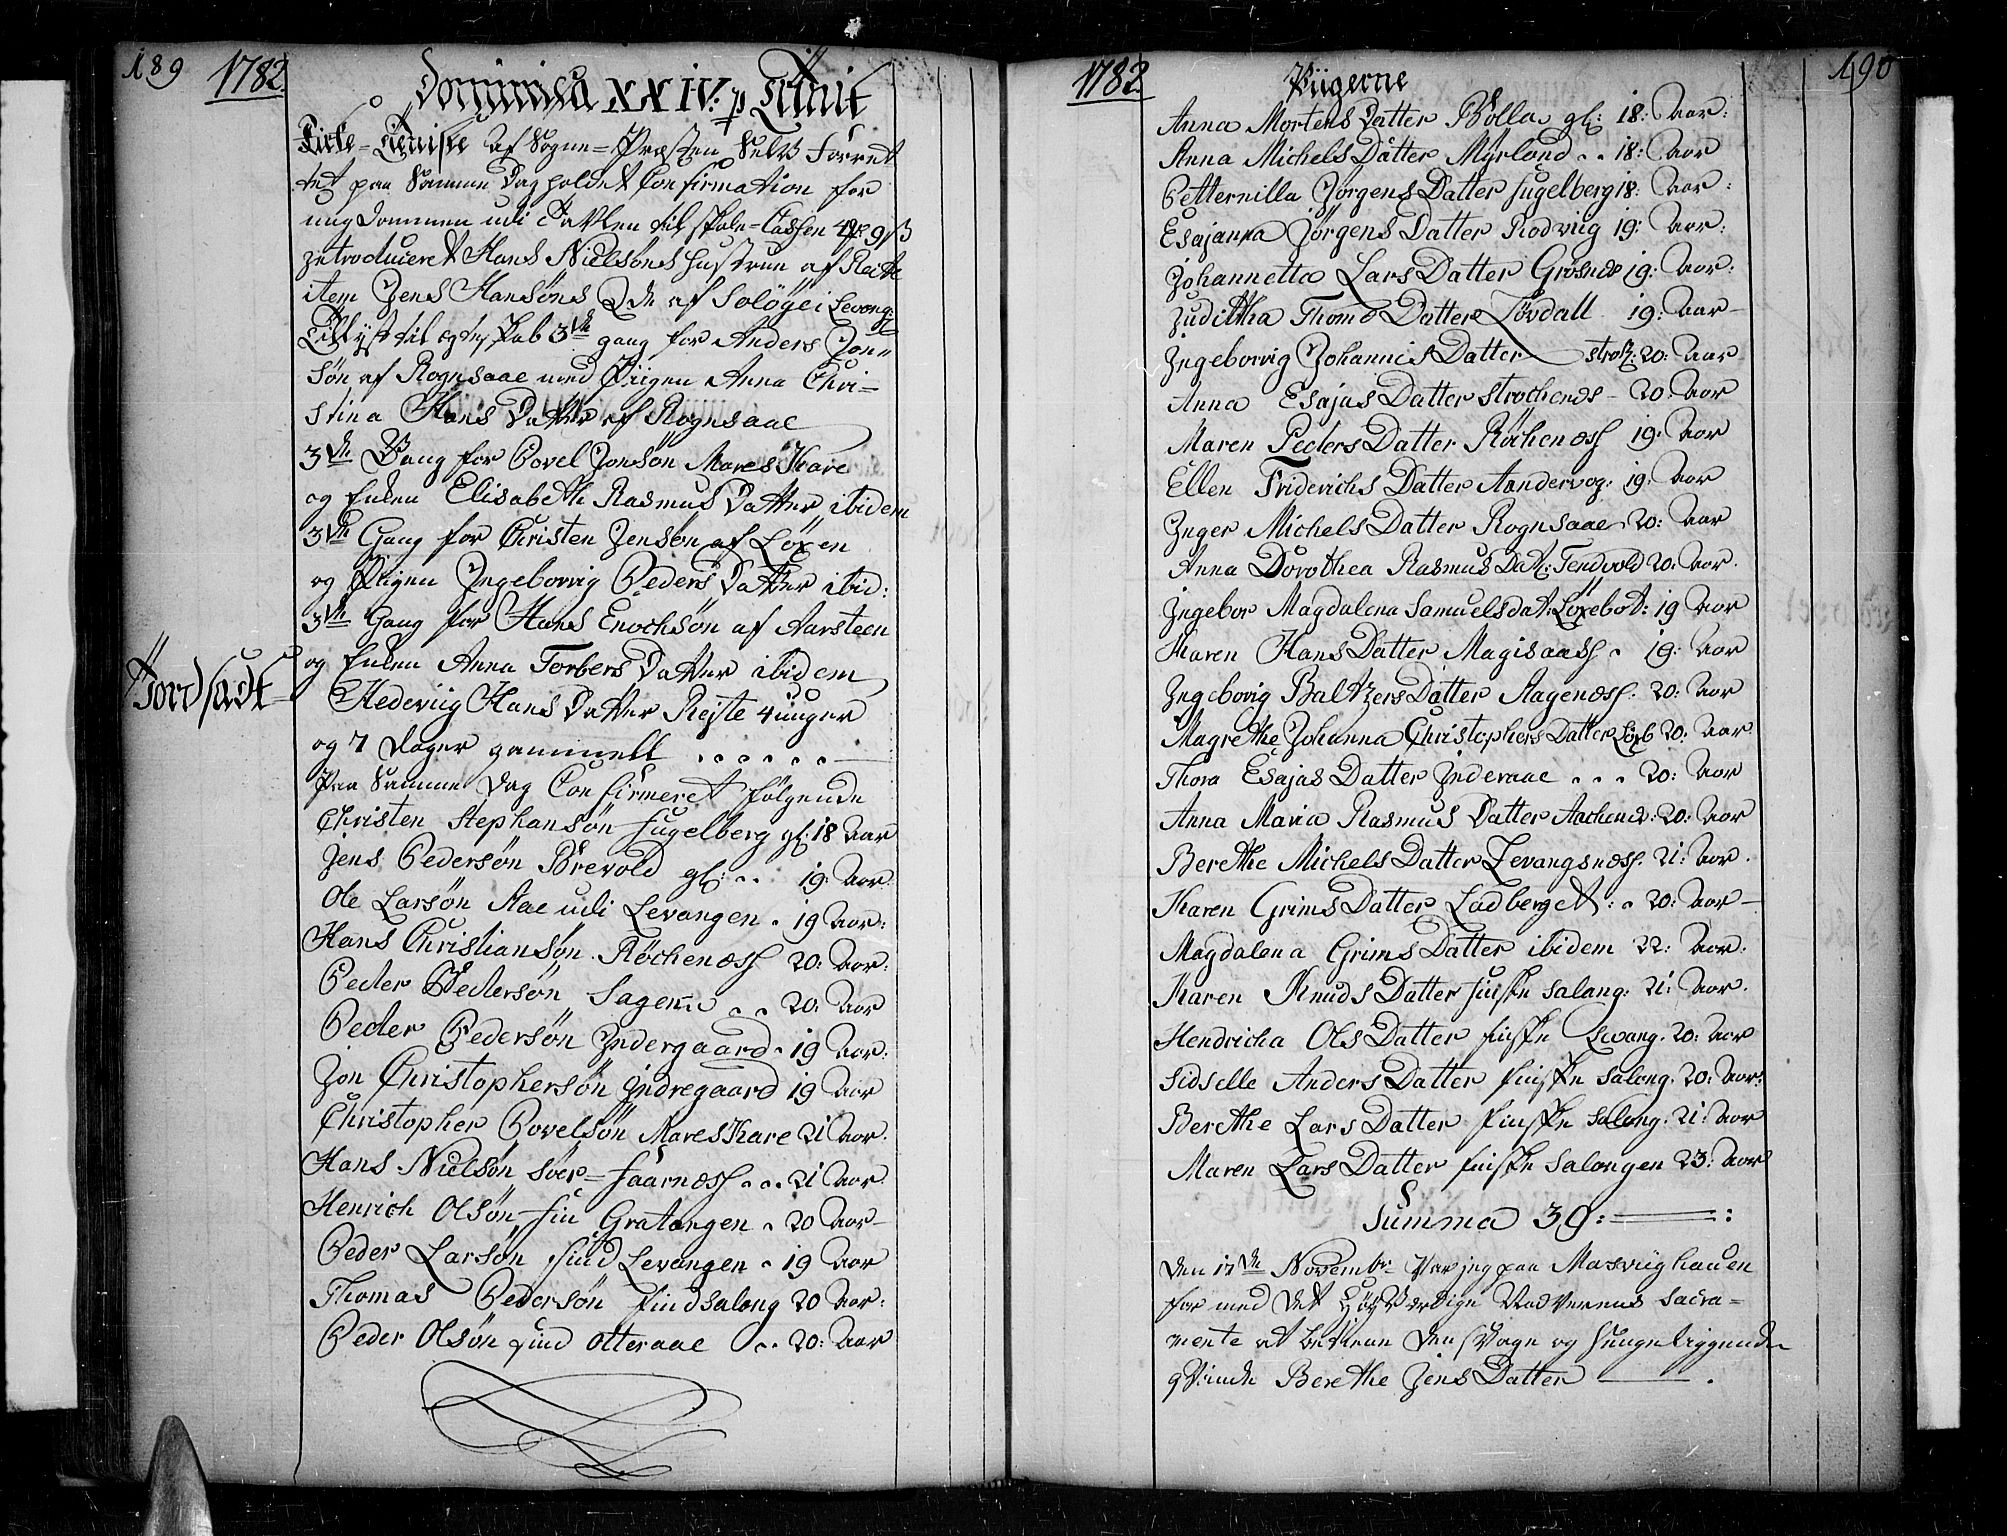 189 1782. Dominica XXIV. p Trinit
Kirke-Tieniste af Sogne-Præsten Selv Forret
tet paa Samme Dag holdet Confirmation for
ungdommen udi Tavlen til Skole-Cassen 9 ß
Introduceret Hans Nielsøns Hustrue af
item Jens Hansøns Do af Soløye i Levang:
Tillyst til Egteskab 3de gang for Anders Jon-
søn af Rognsaae med Piigen Anna Chri-
stina Hans Datter af Rognsaae
3de Gang for Povel Jonsøn MaresKare
og Enken Elisabeth Rasmus Datter ibidem
3de Gang for Christen Jensøn af Løxen
og Piigen Ingeborrig Peders Datter ibid:
3de Gang for Hans Enochsøn af Aarsteen
og Enken Anna Torbers Datter ibidem
Jordsadt
Hedeviig Hans Datter Rejste 4 uuger
og 7 Dager gammell . . . . . .
Paa Samme Dag Confirmeret følgende
Christen Stephansøn Fugelberg gl: 18 Aar
Jens Pedersøn Brevold gl: . . 19: Aar
Ole Larsøn Aae udi Levangen . 19 Aar:
Hans Christiansøn Røchenæss 20: Aar:
Peder Pedersøn Sagen . . 20: Aar
Peder Pedersøn Indergaard . 19 Aar:
Jon Christophersøn Indregaard 19 Aar
Christopher Povelsøn MaresKare 21 Aar.
Hans Nielsøn Sør-Faarnæss . . 21 Aar
Henrich Olsøn Fin Gratangen . 20 Aar-
Peder Larsøn Find Levangen . 19 Aar
Thomas Pedersøn Find Salang 20 Aar:
Peder Olsøn Find Otteraae . . 20: Aar
1782. Piigerne 190
Anna Mortens Datter Bolla. gl: 18: Aar:
Anna Michels Datter Myrlond . . 18: Aar
Petternilla Jørgens Datter Fugelberg 18: Aar:
Esajanna Jørgens Datter Rodviig 19: Aar:
Johannetta Lars Datter Grøsnes 19: Aar:
Juditha Thoms Datter Løvdall 19: Aar-
Ingeborrig Johannis Datter Strox: 20: Aar
Anna Esajas Datter Strochends - 20: Aar
Maren Peders Datter Røchenæss 19: Aar
Ellen Friderichs Datter Aandervog: 19: Aar
Inger Michels Datter Rognsaae 20: Aar
Anna Dorothea Rasmus Dat: Tendvold 20: Aar.
Ingebor Magdalena Samuelsdat: Løxebot: 19 Aar
Karen Hans Datter Magisaass . 19: Aar
Ingeborig Baltzers Datter Aagenæss: 20: Aar
Magrethe Johanna Christophers Datter Løxb 20: Aar
Thora Esajas Datter Inderaae . . . 20: Aar
Anna Maria Rasmus Datter Aachend: 20: Aar
Berethe Michels Datter Levangsnæss. 21: Aar.
Karen Grims Datter Ladberget: . 20: Aar-
Magdalena Grims Datter ibidem 22: Aar:
Karen Knuds Datter Finske Salang: 21: Aar.
Hendricha Ols Datter Finske Levang. 20: Aar
Sidselle Anders Datter Finske Salang. 20: Aar:
Berethe Lars Datter Finske Salang: 21: Aar
Maren Lars Datter Finske Salangen 23: Aar
Summa 39:
Den 17de Novembr Var jeg paa Masviighauen
for med det Høyværdige Nadverens Sacra-
mente at betiene den svage og Senge liggende
qvinde Berethe Jens Datter ——— .